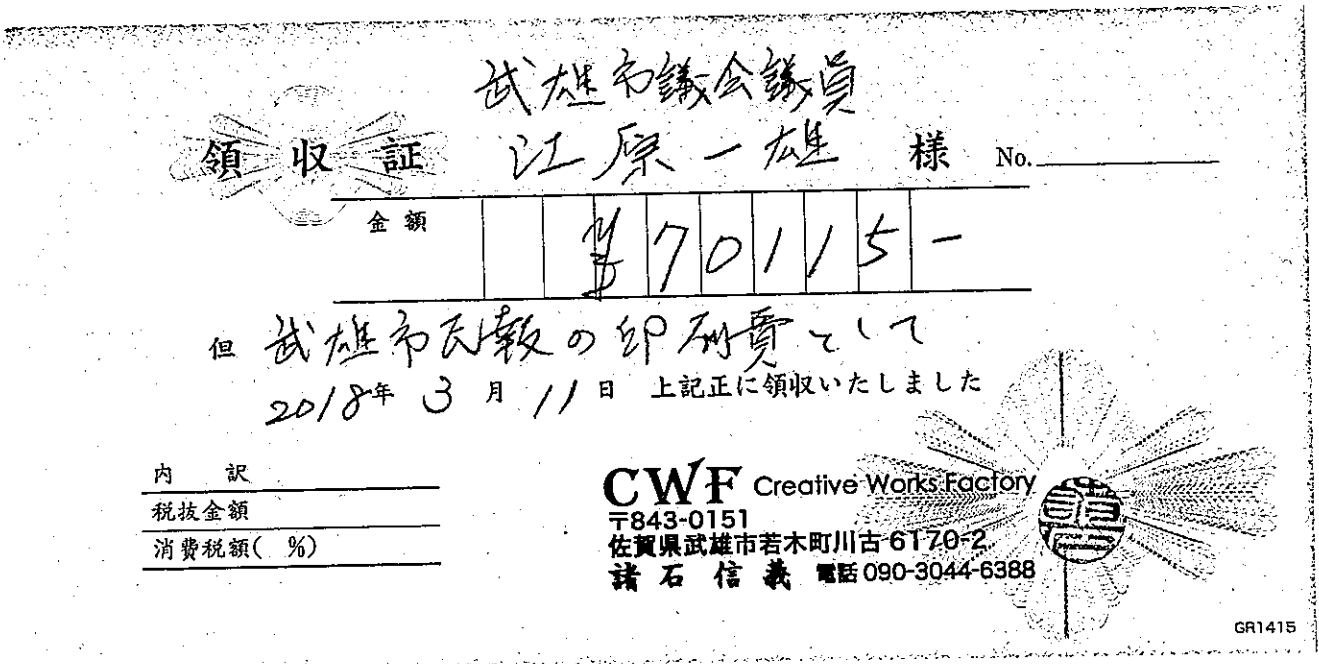 武雄市議会議員
領収証 江原一雄 様 No.
金額 ¥70115-
但 武雄市民報の印刷費として
2018年 3月 11日 上記正に領収いたしました
内訳
税抜金額
消費税額( %)
CWF Creative Works Factory
〒843-0151
佐賀県武雄市若木町川古6170-2
諸石信義 電話090-3044-6388
GR1415